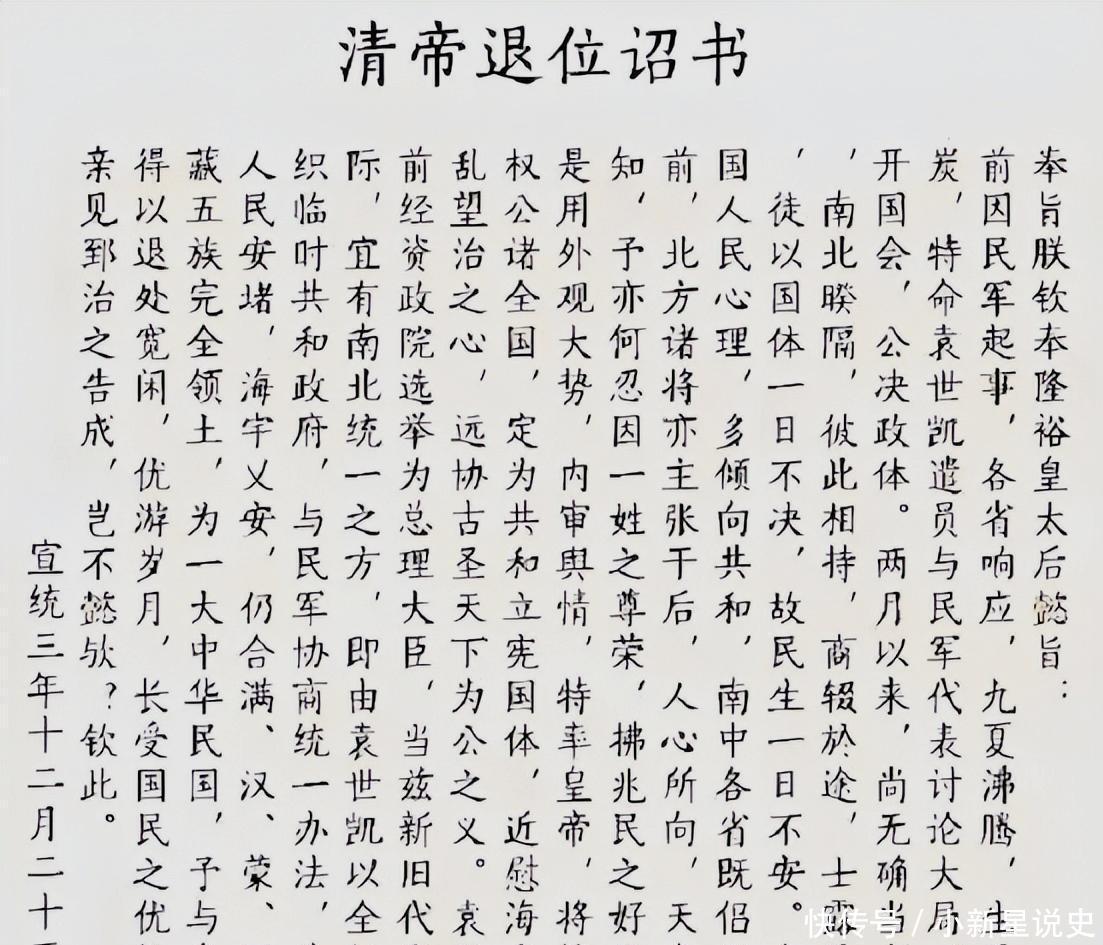 清帝退位诏书
奉旨朕钦奉隆裕皇太后懿旨：
前因民军起事，各省响应，九夏沸腾，生
炭，特命袁世凯遣员与民军代表讨论大局
开国会，公决政体。两月以来，尚无确当
，南北暌隔，彼此相持，商辍於途，士
，徒以国体一日不决，故民生一日不安。
国人民心理，多倾向共和，南中各省既侣
前，北方诸将亦主张干后，人心所向，天
知，予亦何忍因一姓之尊荣，拂兆民之好
是用外观大势，内审舆情，特率皇帝，将
权公诸全国，定为共和立宪国体，近慰海
乱望治之心，远协古圣天下为公之义。袁
前经资政院选举为总理大臣，当兹新旧代
际，宜有南北统一之方，即由袁世凯以全
织临时共和政府，与民军协商统一办法，
人民安堵，海宇乂安，仍合满、汉、蒙、
藏五族完全领土，为一大中华民国，予与
得以退处宽闲，优游岁月，长受国民之优
亲见郅治之告成，岂不懿欤？钦此。
宣统三年十二月二十
快传号／小新星说史